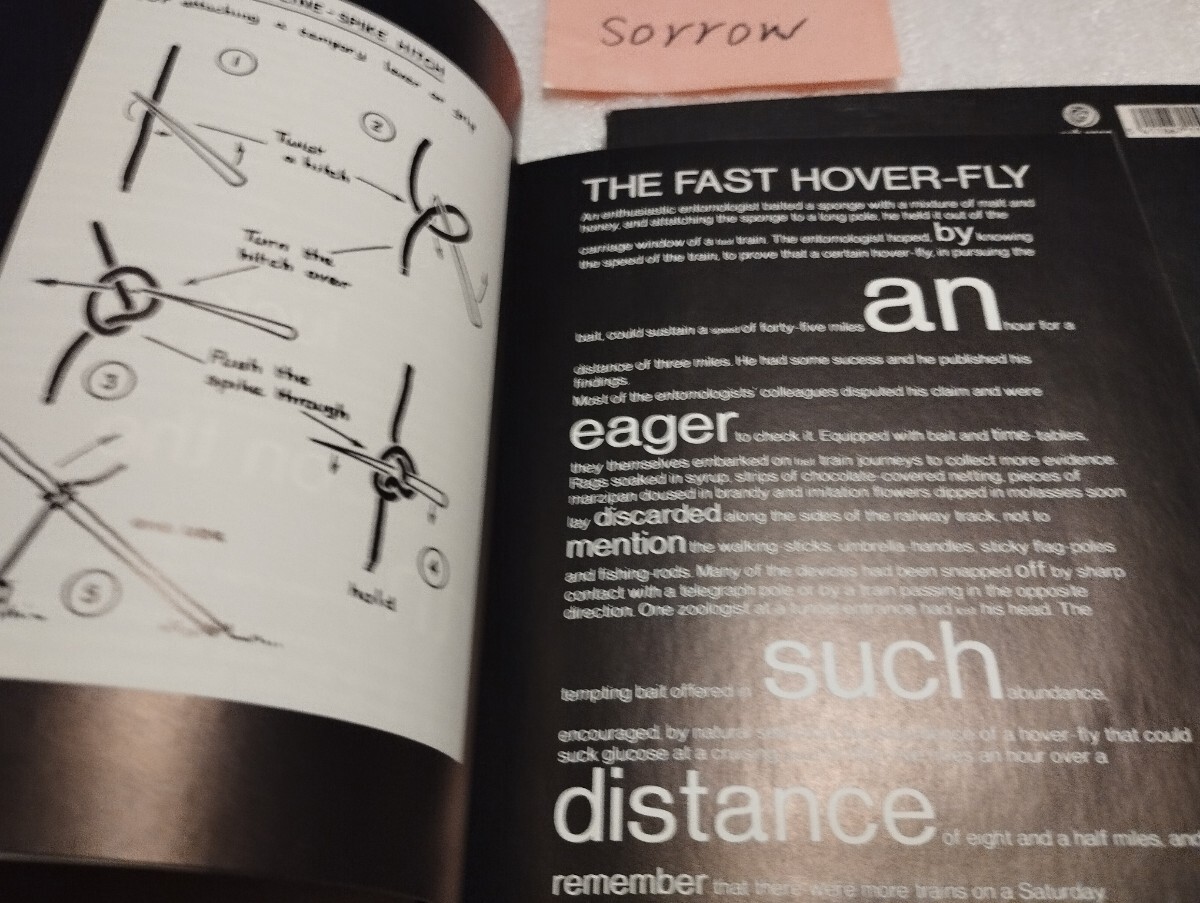 sorrow
LINE-SPIKE HITCH
attaching a
lever or
1
Twist
a hitch
2
Turn the
hitch over
3
Push the
spike through
4
hold
5
THE FAST HOVER-FLY
An enthusiastic entomologist baited a sponge with a mixture of malt and
honey, and attatching the sponge to a long pole, he held it out of the
carriage window of a train. The entomologist hoped, by knowing
the speed of the train, to prove that a certain hover-fly, in pursuing the
bait, could sustain a speed of forty-five miles an hour for a
distance of three miles. He had some sucess and he published his
findings.
Most of the entomologists' colleagues disputed his claim and were
eager to check it. Equipped with bait and time-tables,
they themselves embarked on train journeys to collect more evidence.
Rags soaked in syrup, strips of chocolate-covered netting, pieces of
marzipan doused in brandy and imitation flowers dipped in molasses soon
lay discarded along the sides of the railway track, not to
mention the walking-sticks, umbrella-handles, sticky flag-poles
and fishing-rods. Many of the devices had been snapped off by sharp
contact with a telegraph pole or by a train passing in the opposite
direction. One zoologist at a tunnel entrance had his head. The
tempting bait offered in such abundance,
encouraged, by natural of a hover-fly that could
suck glucose at a an hour over a
distance of eight and a half miles, and
remember that there were more trains on a Saturday.